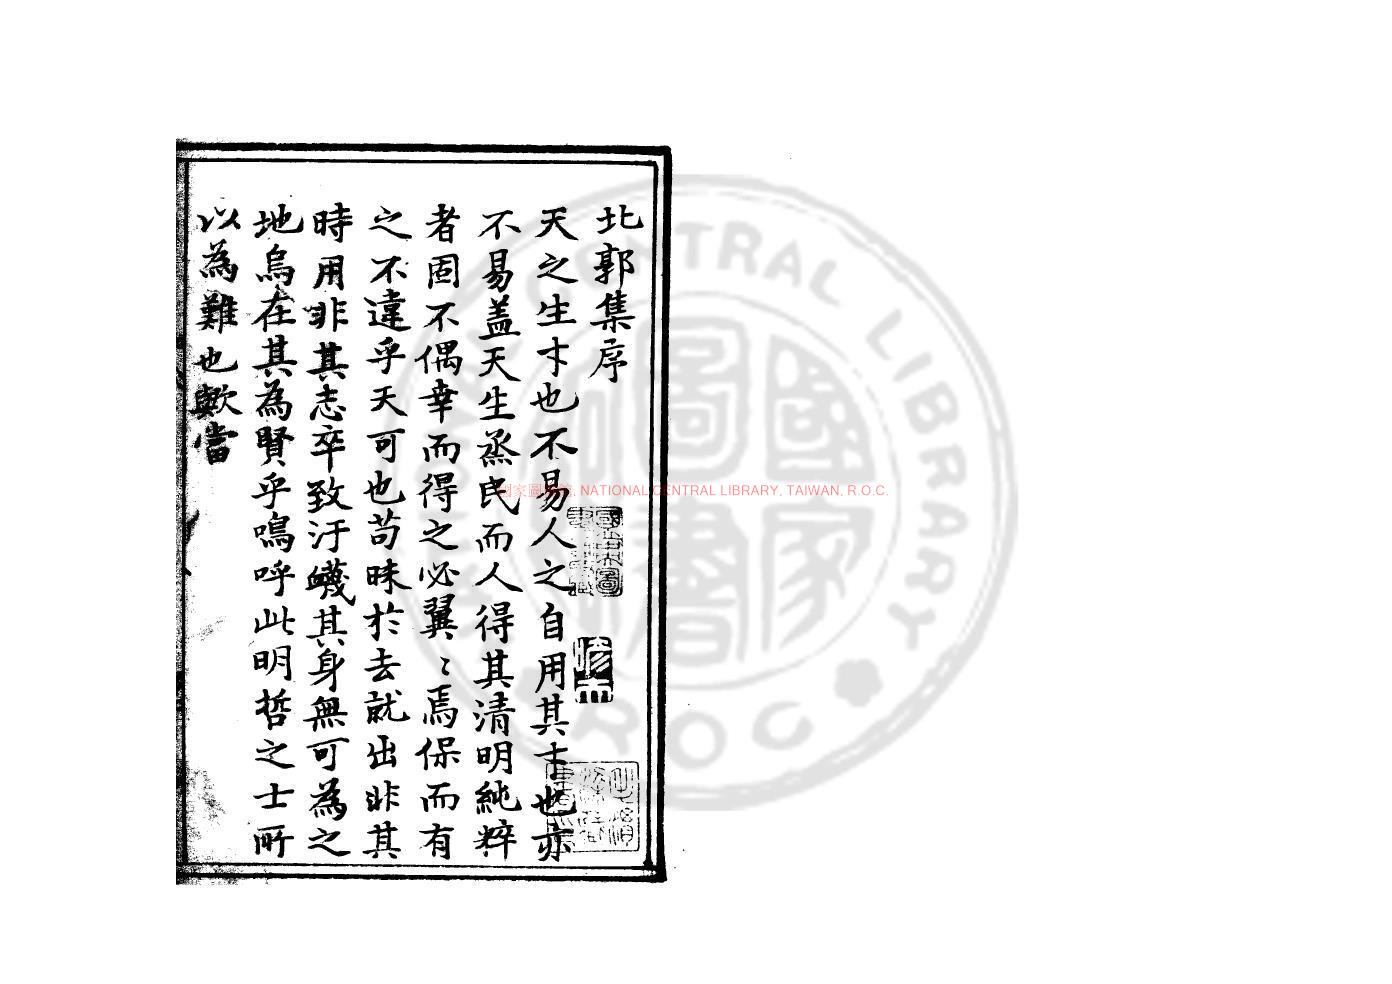 北郭集序
天之生才也不易人之自用其才也亦
不易盖天生烝民而人得其清明純粹
者固不偶幸而得之必翼〻焉保而有
之不違乎天可也苟昧於去就出非其
時用非其志卒致汙衊其身無可為之
地烏在其為賢乎嗚呼此明哲之士所
以為難也歟當
國家圖書館, NATIONAL CENTRAL LIBRARY, TAIWAN, R.O.C.
NATIONAL CENTRAL LIBRARY
ROC
國家圖書